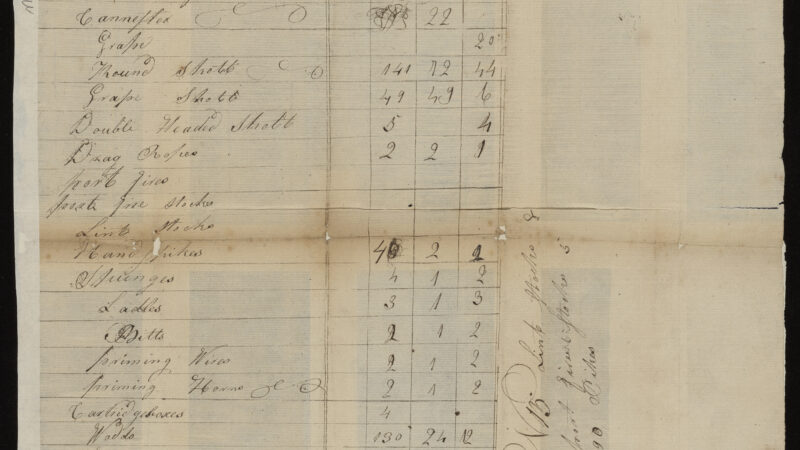 Cannester 22
Grape 20
Round Shott 141 12 44
Grape Shott 49 49 6
Double Headed Shott 5 4
Drag Ropes 2 2 1
port fires
Stocks
Lint Stocks
Hand Spikes 2
Spunges 4 1 2
Ladles 3 1 3
Bitts 2 1 2
priming Wires 2 1 2
priming Horns 2 1 2
Cartridgeboxes 4
Wadds 130 24 12
NB Lint Stocks 8
port Stocks 5
90 Pikes